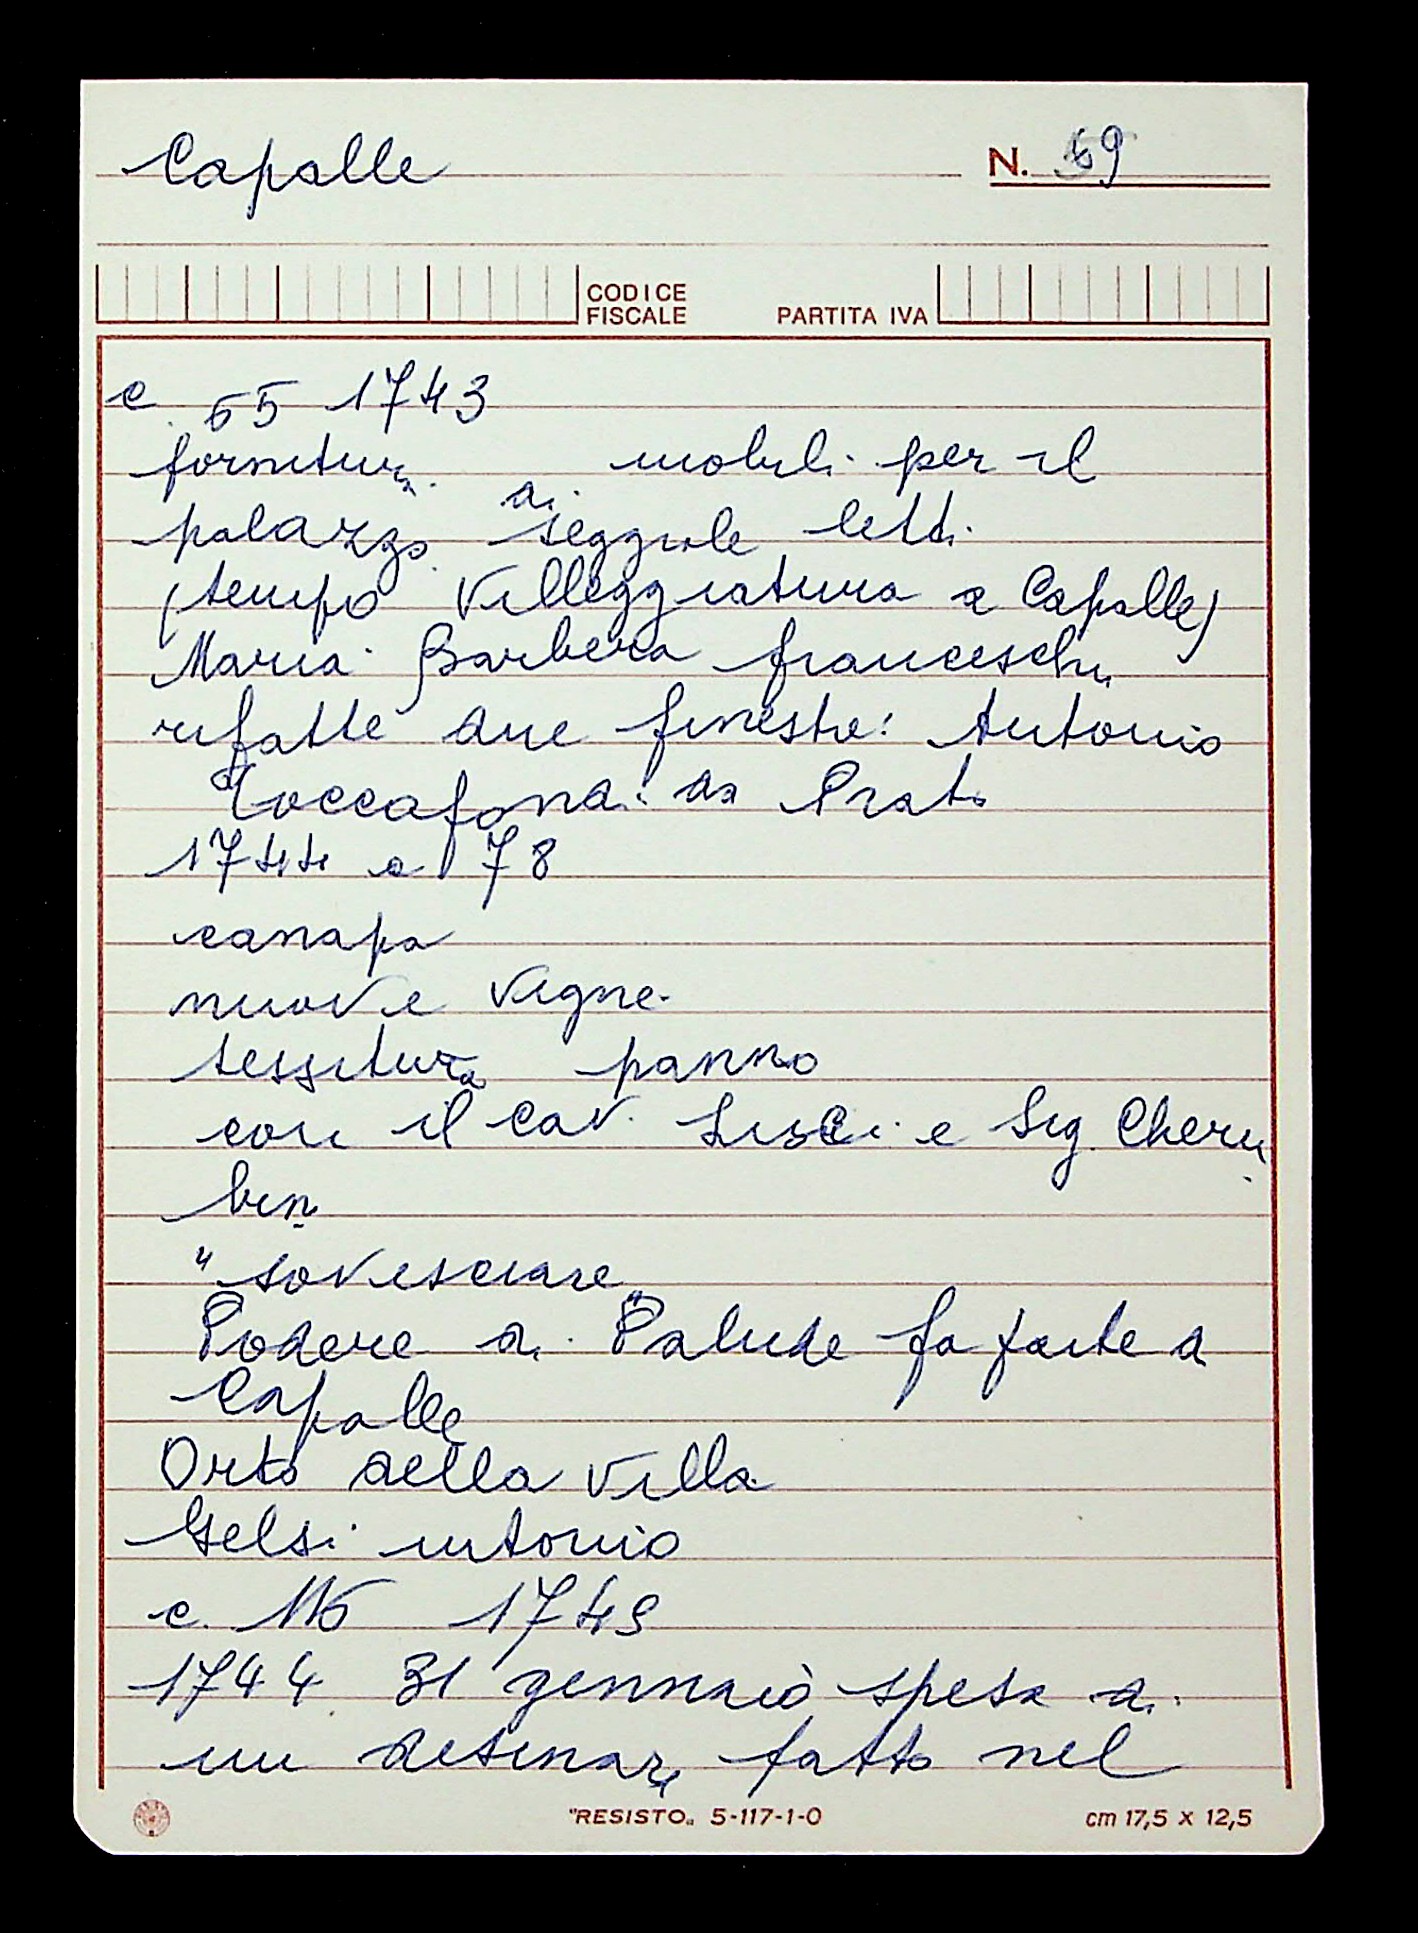 Capalle N. 69
CODICE FISCALE PARTITA IVA
c. 65 1743
fornitura di mobili per il
palazzo seggiole letti
(tempo Villeggiatura a Capalle)
Maria Barbera franceschi
rifatte due finestre: Antonio
Toccafondi da Prato
1744 a 78
canapa
nuove vigne
tessitura panno
con il Cav. Lisci e Sig. Cheru
bin
"sovesciare"
Podere di Palude fa parte di
Capalle
Orto della Villa
Gelsi intorno
c. 116 1749
1744 31 gennaio spesa di
un desinare fatto nel
"RESISTO" 5-117-1-0 cm 17,5 x 12,5